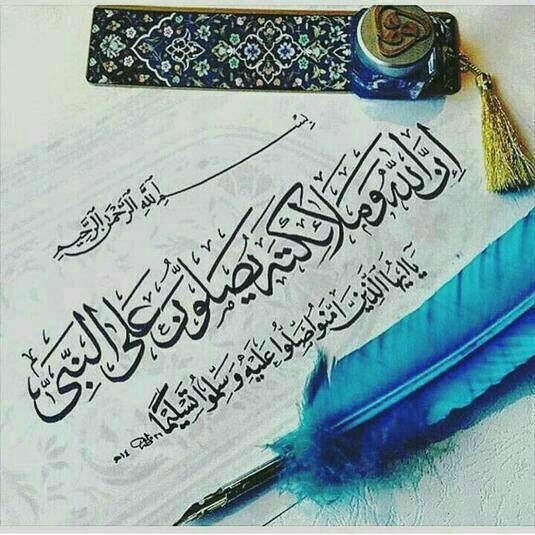 بسم
الله الرحمن الرحيم
إن الله وملائكته يصلون على النبي
يا أيها الذين آمنوا صلوا عليه وسلموا تسليما